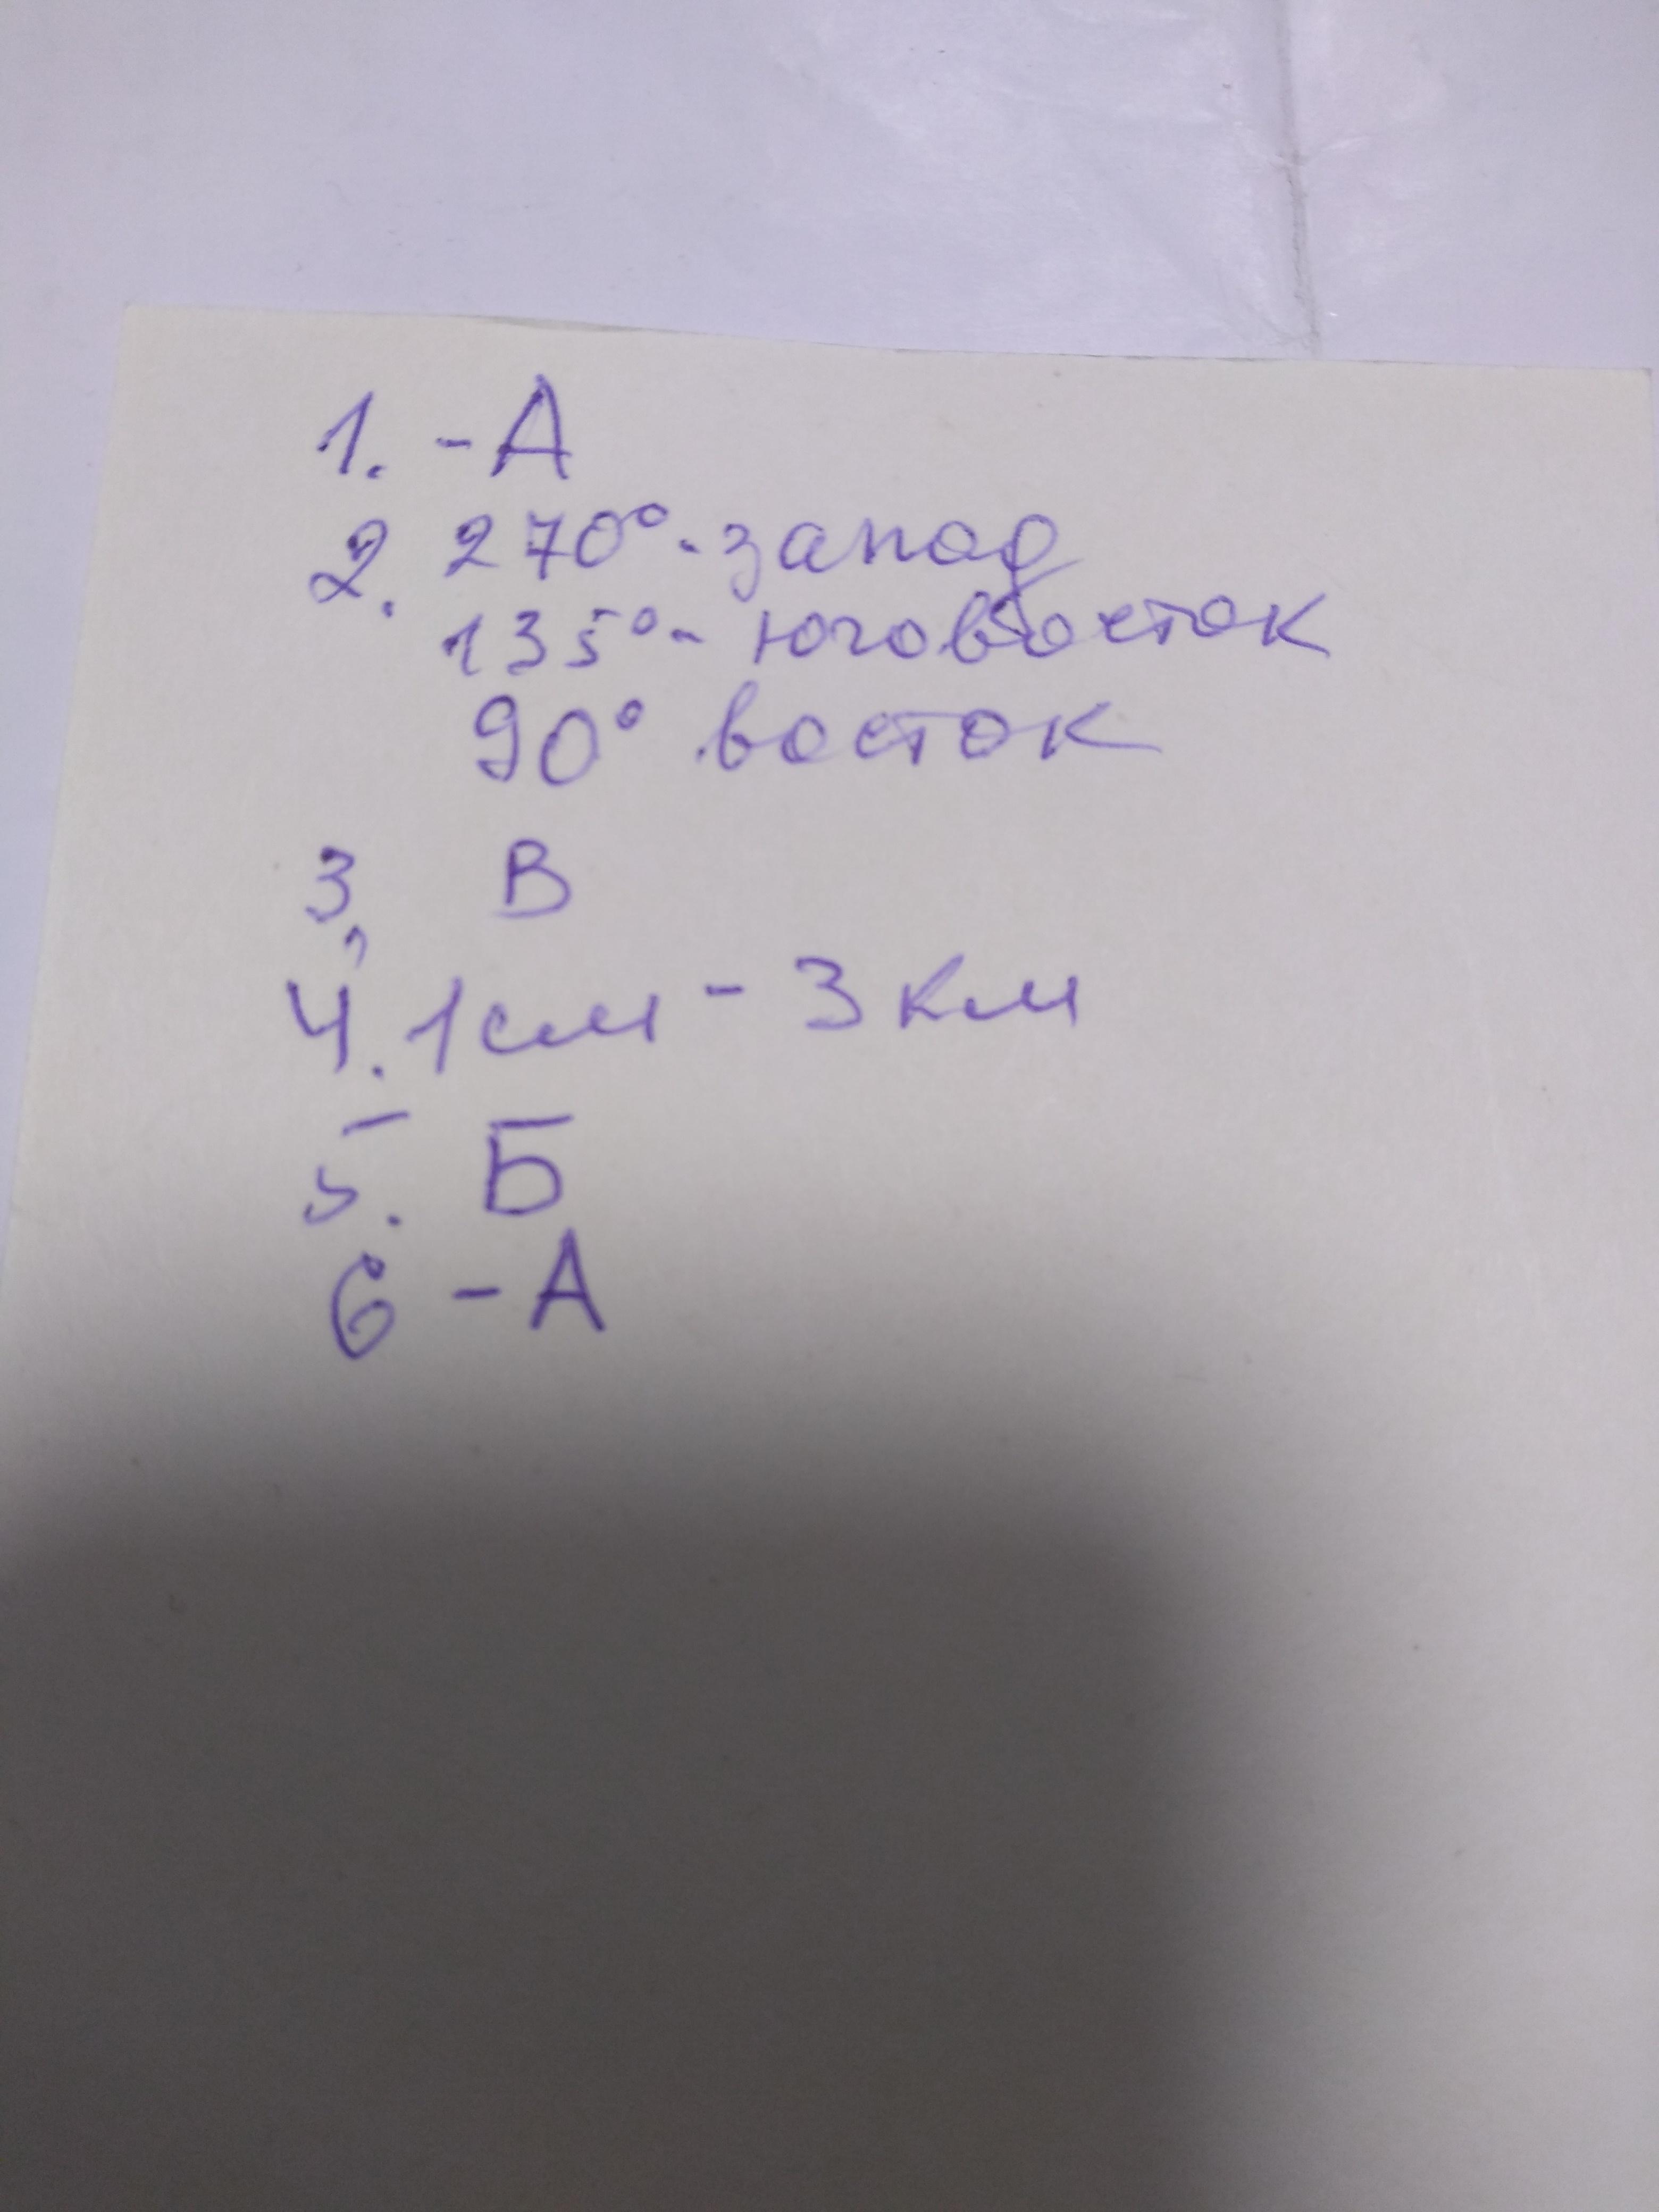 1. - А
2. 270° - запад
135° - юговосток
90° восток
3, В
4. 1 см - 3 км
5. Б
6 - А